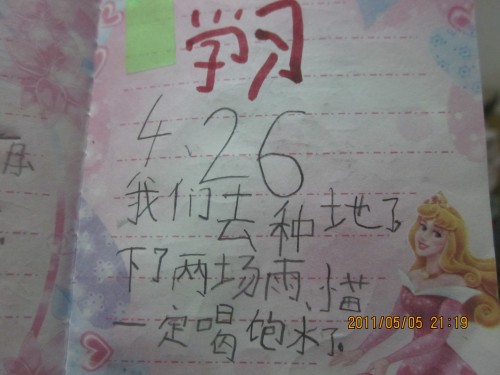 学习
4、26
我们去种地了
下了两场雨、小苗
一定喝饱水了。
2011/05/05 21:19